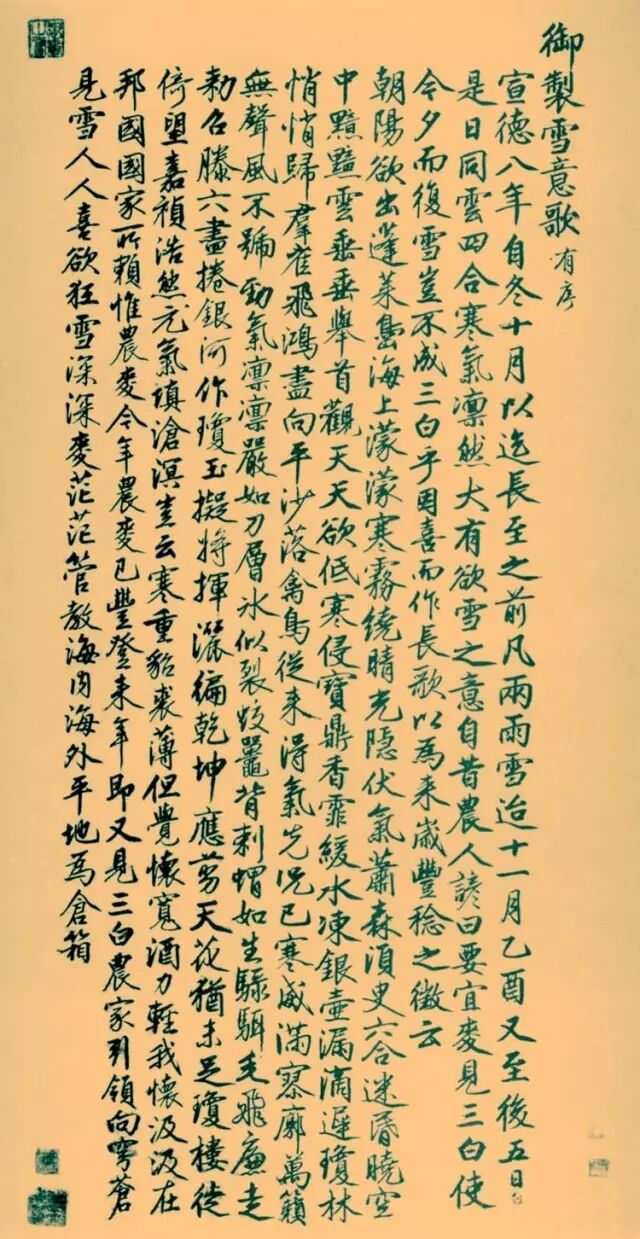 御製雪意歌有序
宣德八年自冬十月以迄長至之前凡兩雨雪迨十一月乙酉又至後五日
是日同雲四合寒氣凛然大有欲雪之意自昔農人諺曰要宜麥見三白使
今夕而復雪豈不成三白乎因喜而作長歌以為來歲豐稔之徵云
朝陽欲出蓬萊島海上濛濛寒霧繞晴光隱伏氣蕭森須臾六合迷昏曉空
中黯黮雲垂垂舉首觀天天欲低寒侵寶鼎香霏緩水凍銀壺漏滴遲瓊林
悄悄歸羣雀飛鴻盡向平沙落禽鳥從來得氣先況已寒威滿寥廓萬籟
無聲風不號勁氣凛凛嚴如刀層冰似裂蛟鼉背刺蝟如生騄駬毛飛廉走
勅召滕六盡捲銀河作瓊玉擬將揮灑徧乾坤應剪天花猶未足瓊樓徙
倚望嘉禎浩然元氣填滄溟豈云寒重貂裘薄但覺懷寬酒力輕我懷汲汲在
邦國國家所賴惟農麥今年農麥已豐登來年即又見三白農家引領向穹蒼
見雪人人喜欲狂雪深深麥茫茫管教海內海外平地為倉箱